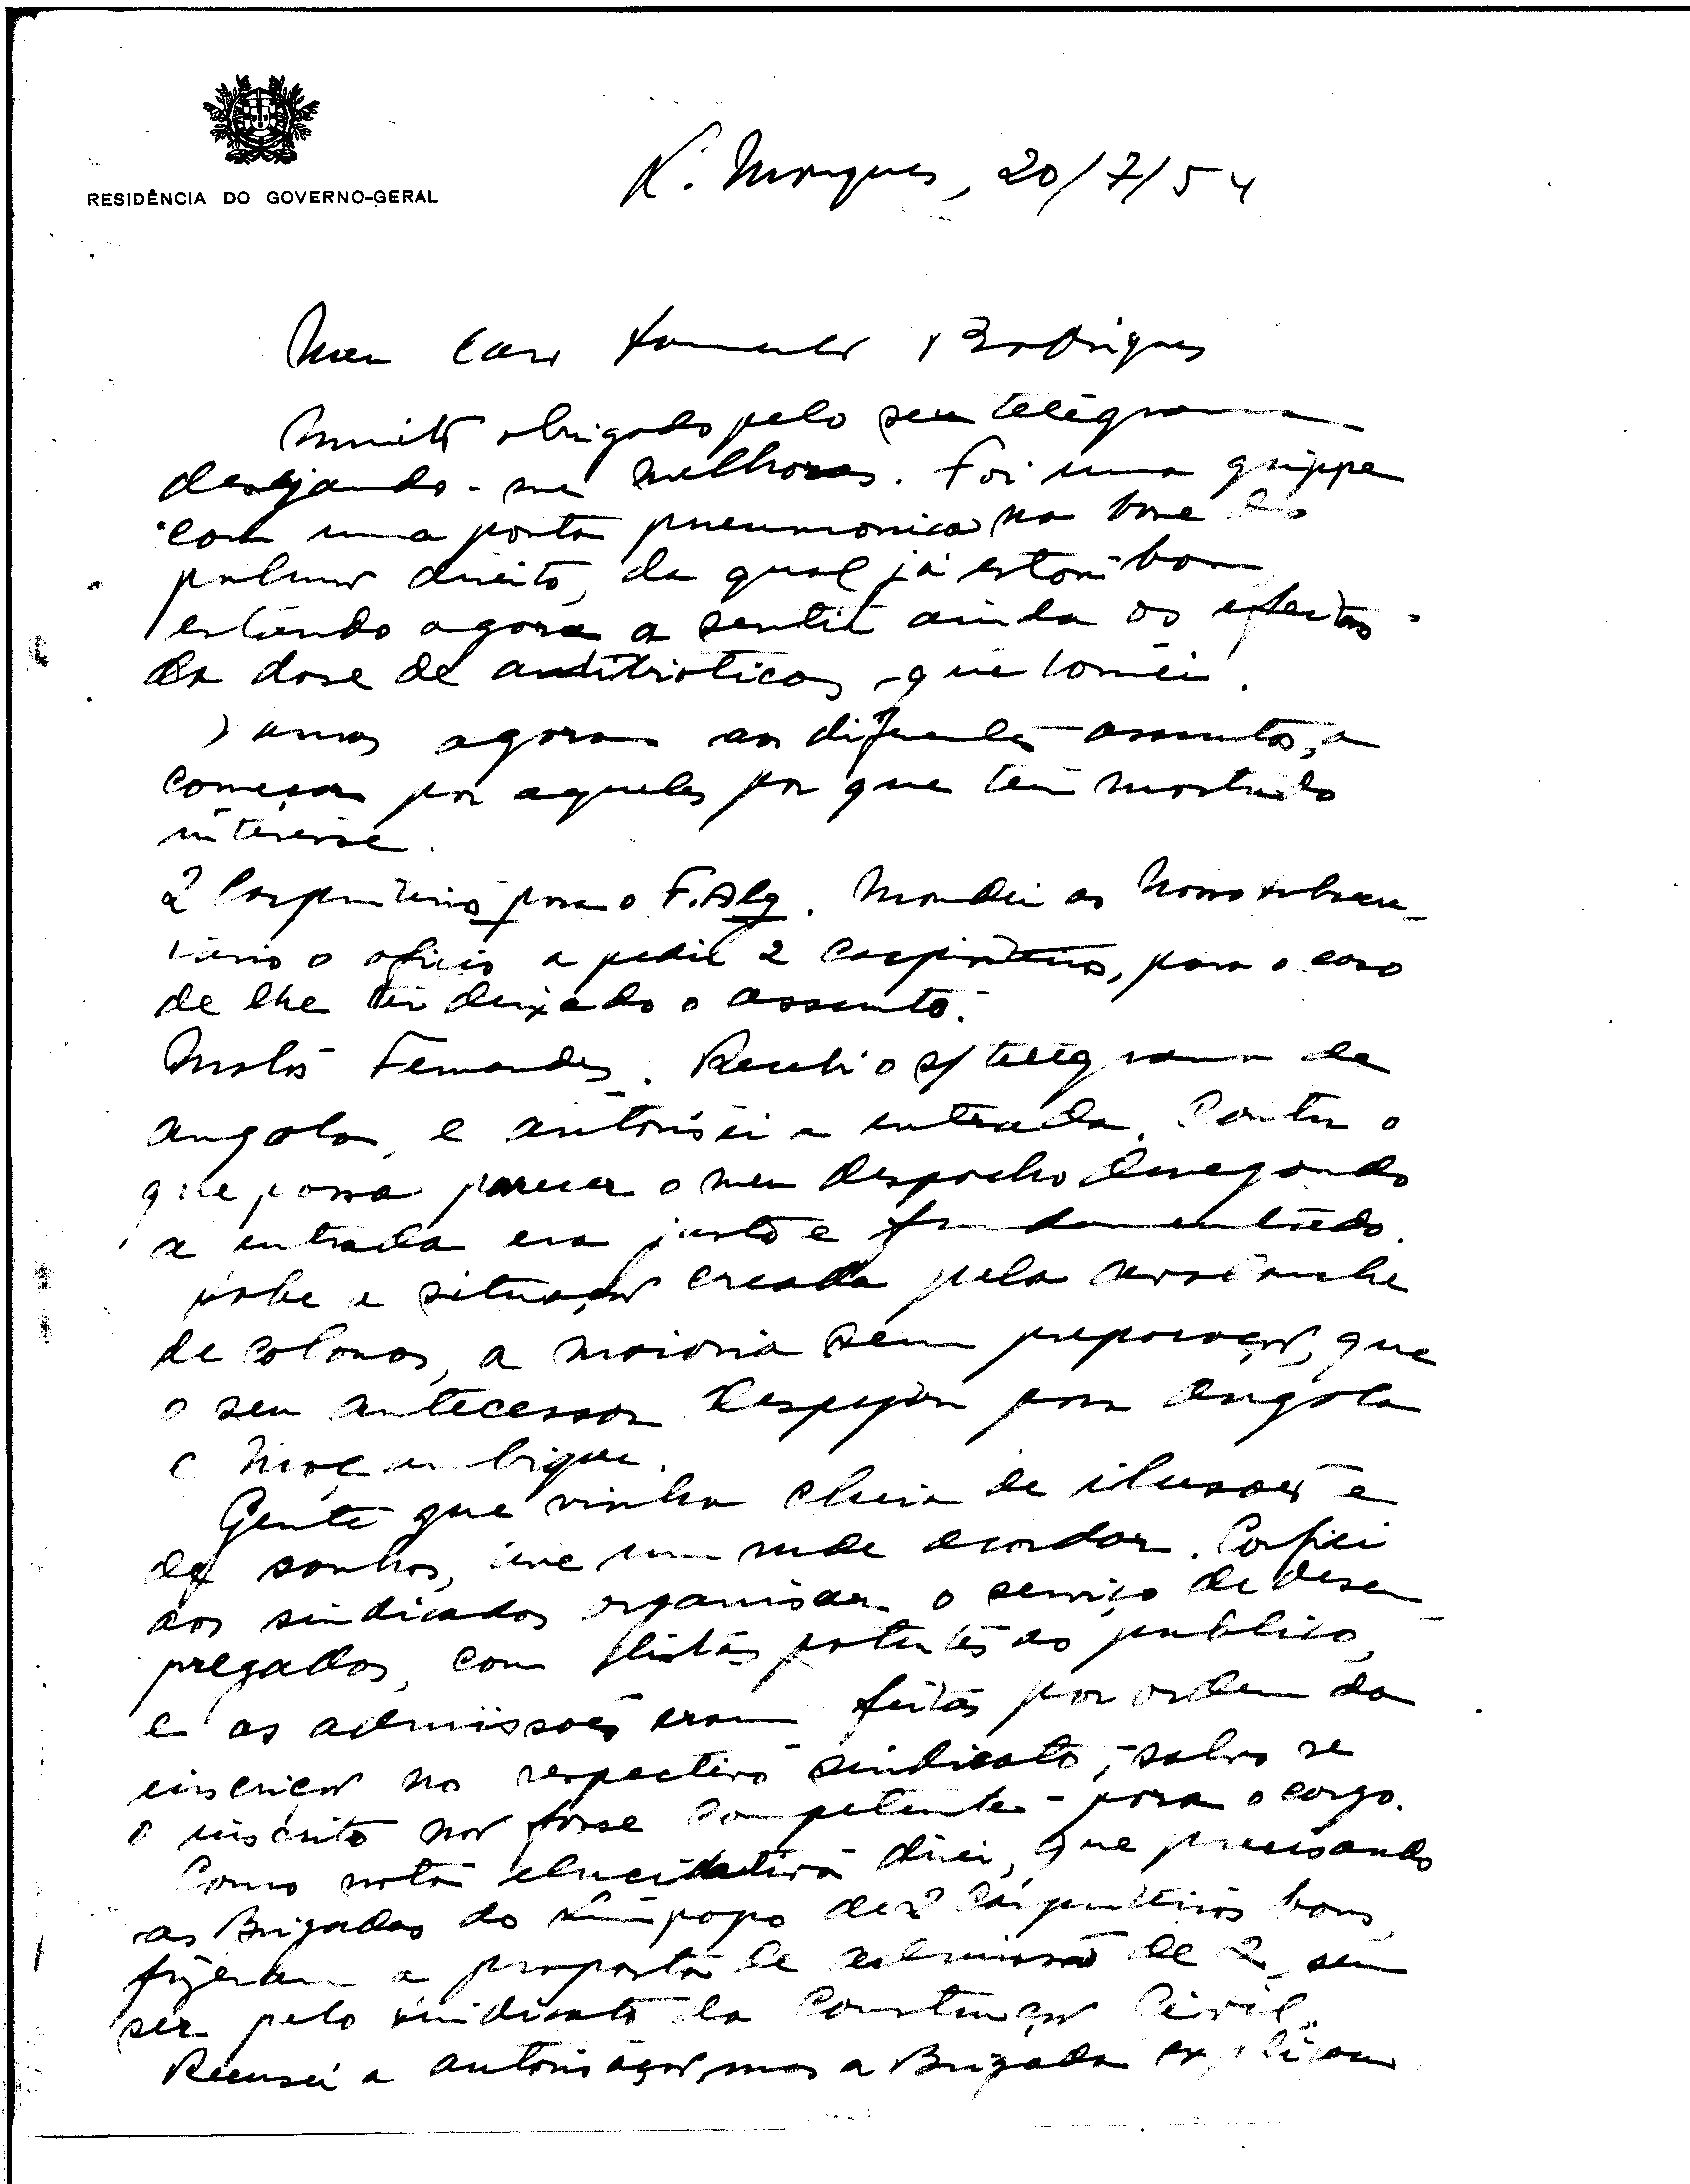 RESIDÊNCIA DO GOVERNO-GERAL
L. Marques, 20/7/54
Meu Caro Sarmento Rodrigues
Muito obrigado pelo seu telegrama
desejando-me melhoras. Foi uma grippe
com uma ponta pneumonica na base do
pulmão direito, da qual já estou bom
estando agora a sentir ainda os efeitos
da dose de antibioticos que tomei.
Vamos agora aos diferentes assuntos, a
começar por aqueles por que tem mostrado
interesse.
2 Carpinteiros para o F. Alg. Mandei ao
o oficio a pedir 2 carpinteiros, para o caso
de lhe ter deixado o assunto.
Fernandes. Recebi o s/ telegrama de
Angola, e autorisei a entrada. Contra o
que possa parecer o meu despacho denegando
a entrada era justo e fundamentado.
Sabe a situação creada pela avalanche
de colonos, a maioria sem preparação, que
o seu antecessor despejou para Angola
e Moçambique.
Gente que vinha cheia de ilusões e
de sonhos, teve um rude acordar.
aos sindicados organisar o serviço de desem-
pregados, com listas patentes ao publico,
e as admissões eram feitas por ordem da
inscrição no respectivo sindicato, salvo se
o inscrito não fosse competente para o cargo.
Como nota elucidativa direi, que precisando
as Brigadas do Limpopo de 2 carpinteiros bons,
fizeram a proposta de admissão de 2, sem
ser pelo sindicato da Construção Civil.
Recusei a autorisação, mas a Brigada explicou